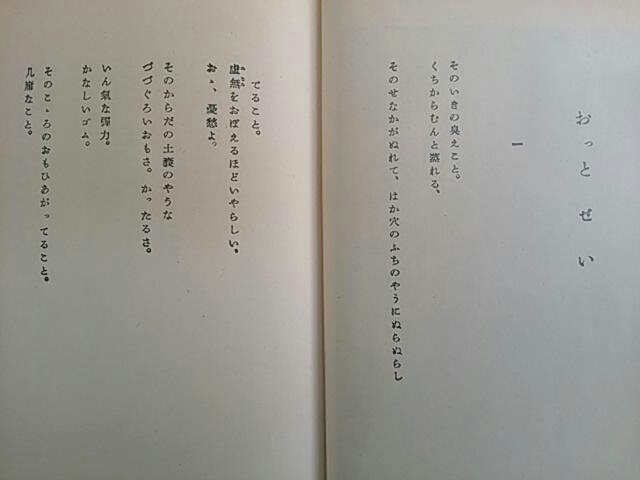 おっとせい
一
そのいきの臭えこと。
くちからむんと蒸れる、
そのせなかがぬれて、はか穴のふちのやうにぬらぬらし
てること。
虚無をおぼえるほどいやらしい。
おゝ、憂愁よ。
そのからだの土嚢のやうな
づづぐろいおもさ。かったるさ。
いん氣な彈力。
かなしいゴム。
そのこゝろのおもひあがってること。
凡庸なこと。